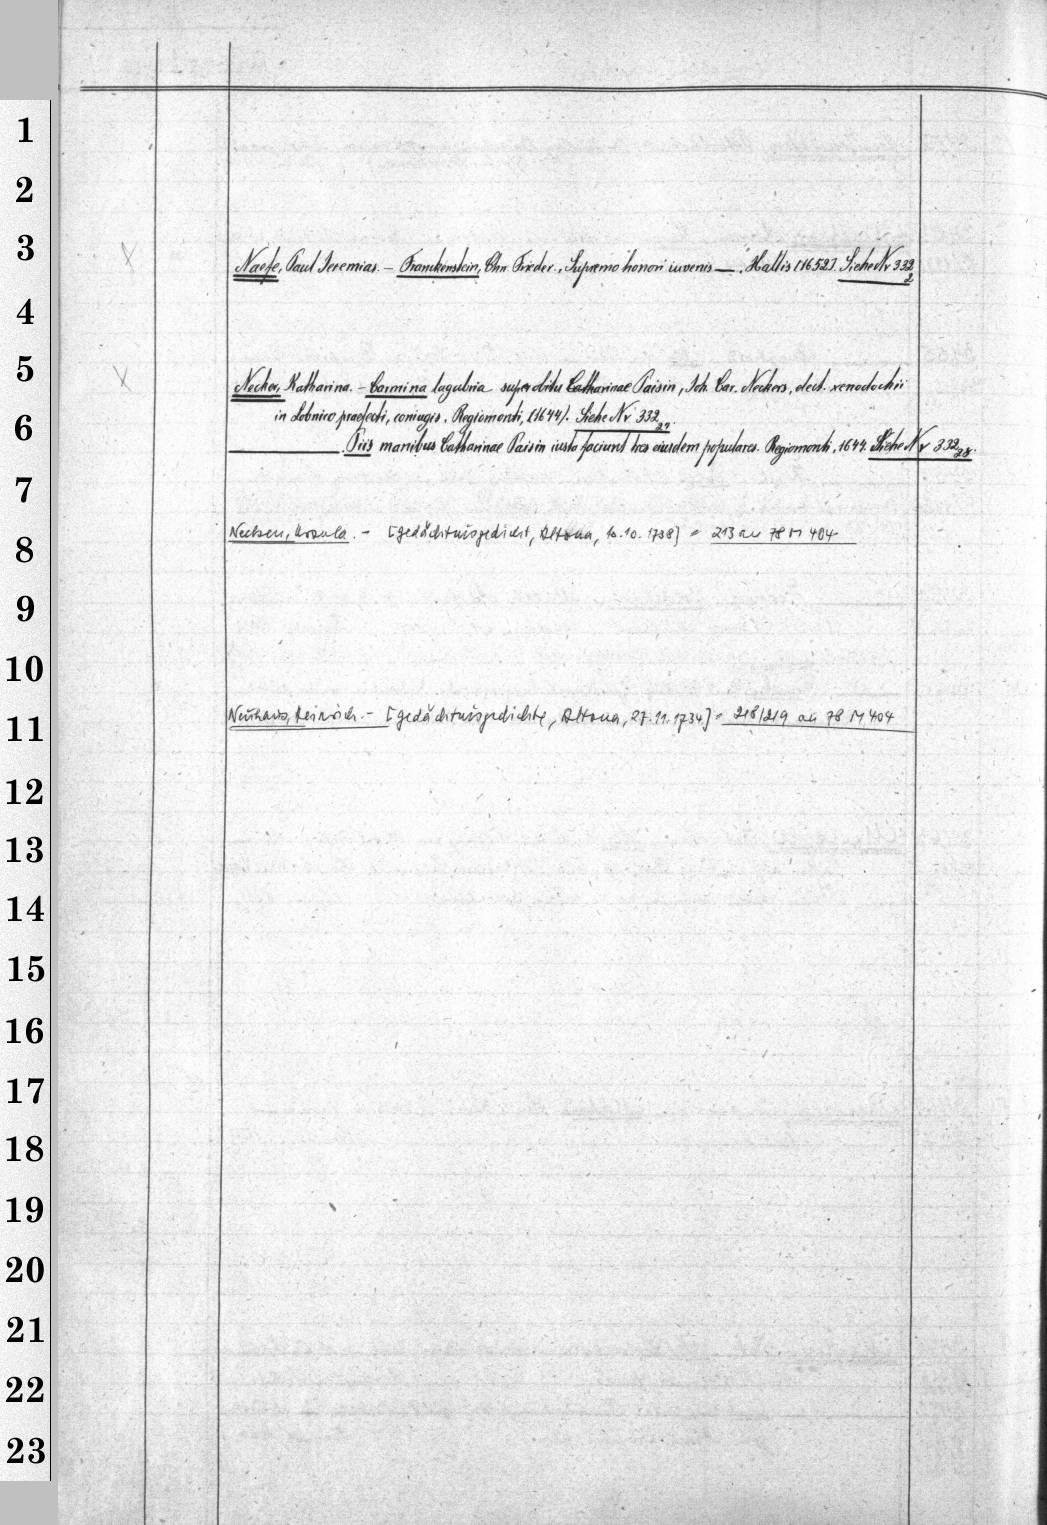 1
2
3
Naefe, Paul Jeremias. – Franckenstein, Chr. Frieder., Supremo honori iuvenis —. Hallis [1652]. Siehe Nr 332 2
4
5
Necker, Katharina. – Carmina lugubria super obitu Catharinae Paisin, Joh. Car. Neckers, elect. xenodochii
in Lobnico praefecti, coniugis. Regiomonti, [1644]. Siehe Nr 332 27
6
———. Piis manibus Catharinae Paisin iusta faciunt hos eiusdem populares. Regiomonti, 1644. Siehe Nr 332 28.
7
8
Ursula. – [Gedächtnisgedicht, Altona, 10.10.1738] = 213 an 78 M 404
9
10
11
Neuhaus, Heinrich. – [Gedächtnisgedichte, Altona, 27.11.1734] = 218/219 an 78 M 404
12
13
14
15
16
17
18
19
20
21
22
23